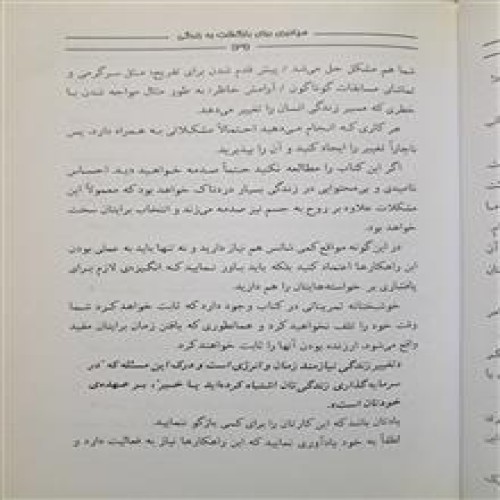 شما هم مشکل حل می‌شد / پیش قدم شدن برای تفریح، مثل سرگرمی و
تماشای مسابقات گوناگون / آرامش خاطر، به طور مثال مواجه شدن با
خطری که مسیر زندگی انسان را تغییر می‌دهد.
هر کاری که انجام می‌دهید احتمالاً مشکلاتی به همراه دارد، پس
ناچاراً تغییر را ایجاد کنید و آن را بپذیرید.
اگر این کتاب را مطالعه نکنید حتماً صدمه خواهید دید. احساس
ناامیدی و بی‌محتوایی در زندگی بسیار دردناک خواهد بود که معمولاً این
مشکلات علاوه بر روح به جسم نیز صدمه می‌زند و انتخاب برایتان سخت
خواهد بود.
در این‌گونه مواقع کمی شانس هم نیاز دارید و نه تنها باید به عملی بودن
این راهکارها اعتماد کنید بلکه باید باور نمایید که انگیزه‌ی لازم برای
پافشاری بر خواسته‌هایتان را هم دارید.
خوشبختانه تمریناتی در کتاب وجود دارد که ثابت خواهد کرد شما
وقت خود را تلف نخواهید کرد و همانطوری که یافتن زمان برایتان مفید
واقع می‌شود، ارزنده بودن آنها را ثابت خواهند کرد.
«تغییر زندگی نیازمند زمان و انرژی است و درک این مسئله که "در
سرمایه‌گذاری زندگی‌تان اشتباه کرده‌اید یا خیر"، بر عهده‌ی
خودتان است».
یادتان باشد که این کارتان را برای کمی بازگو ننمایید.
لطفاً به خود یادآوری نمایید که این راهکارها نیاز به فعالیت دارد و